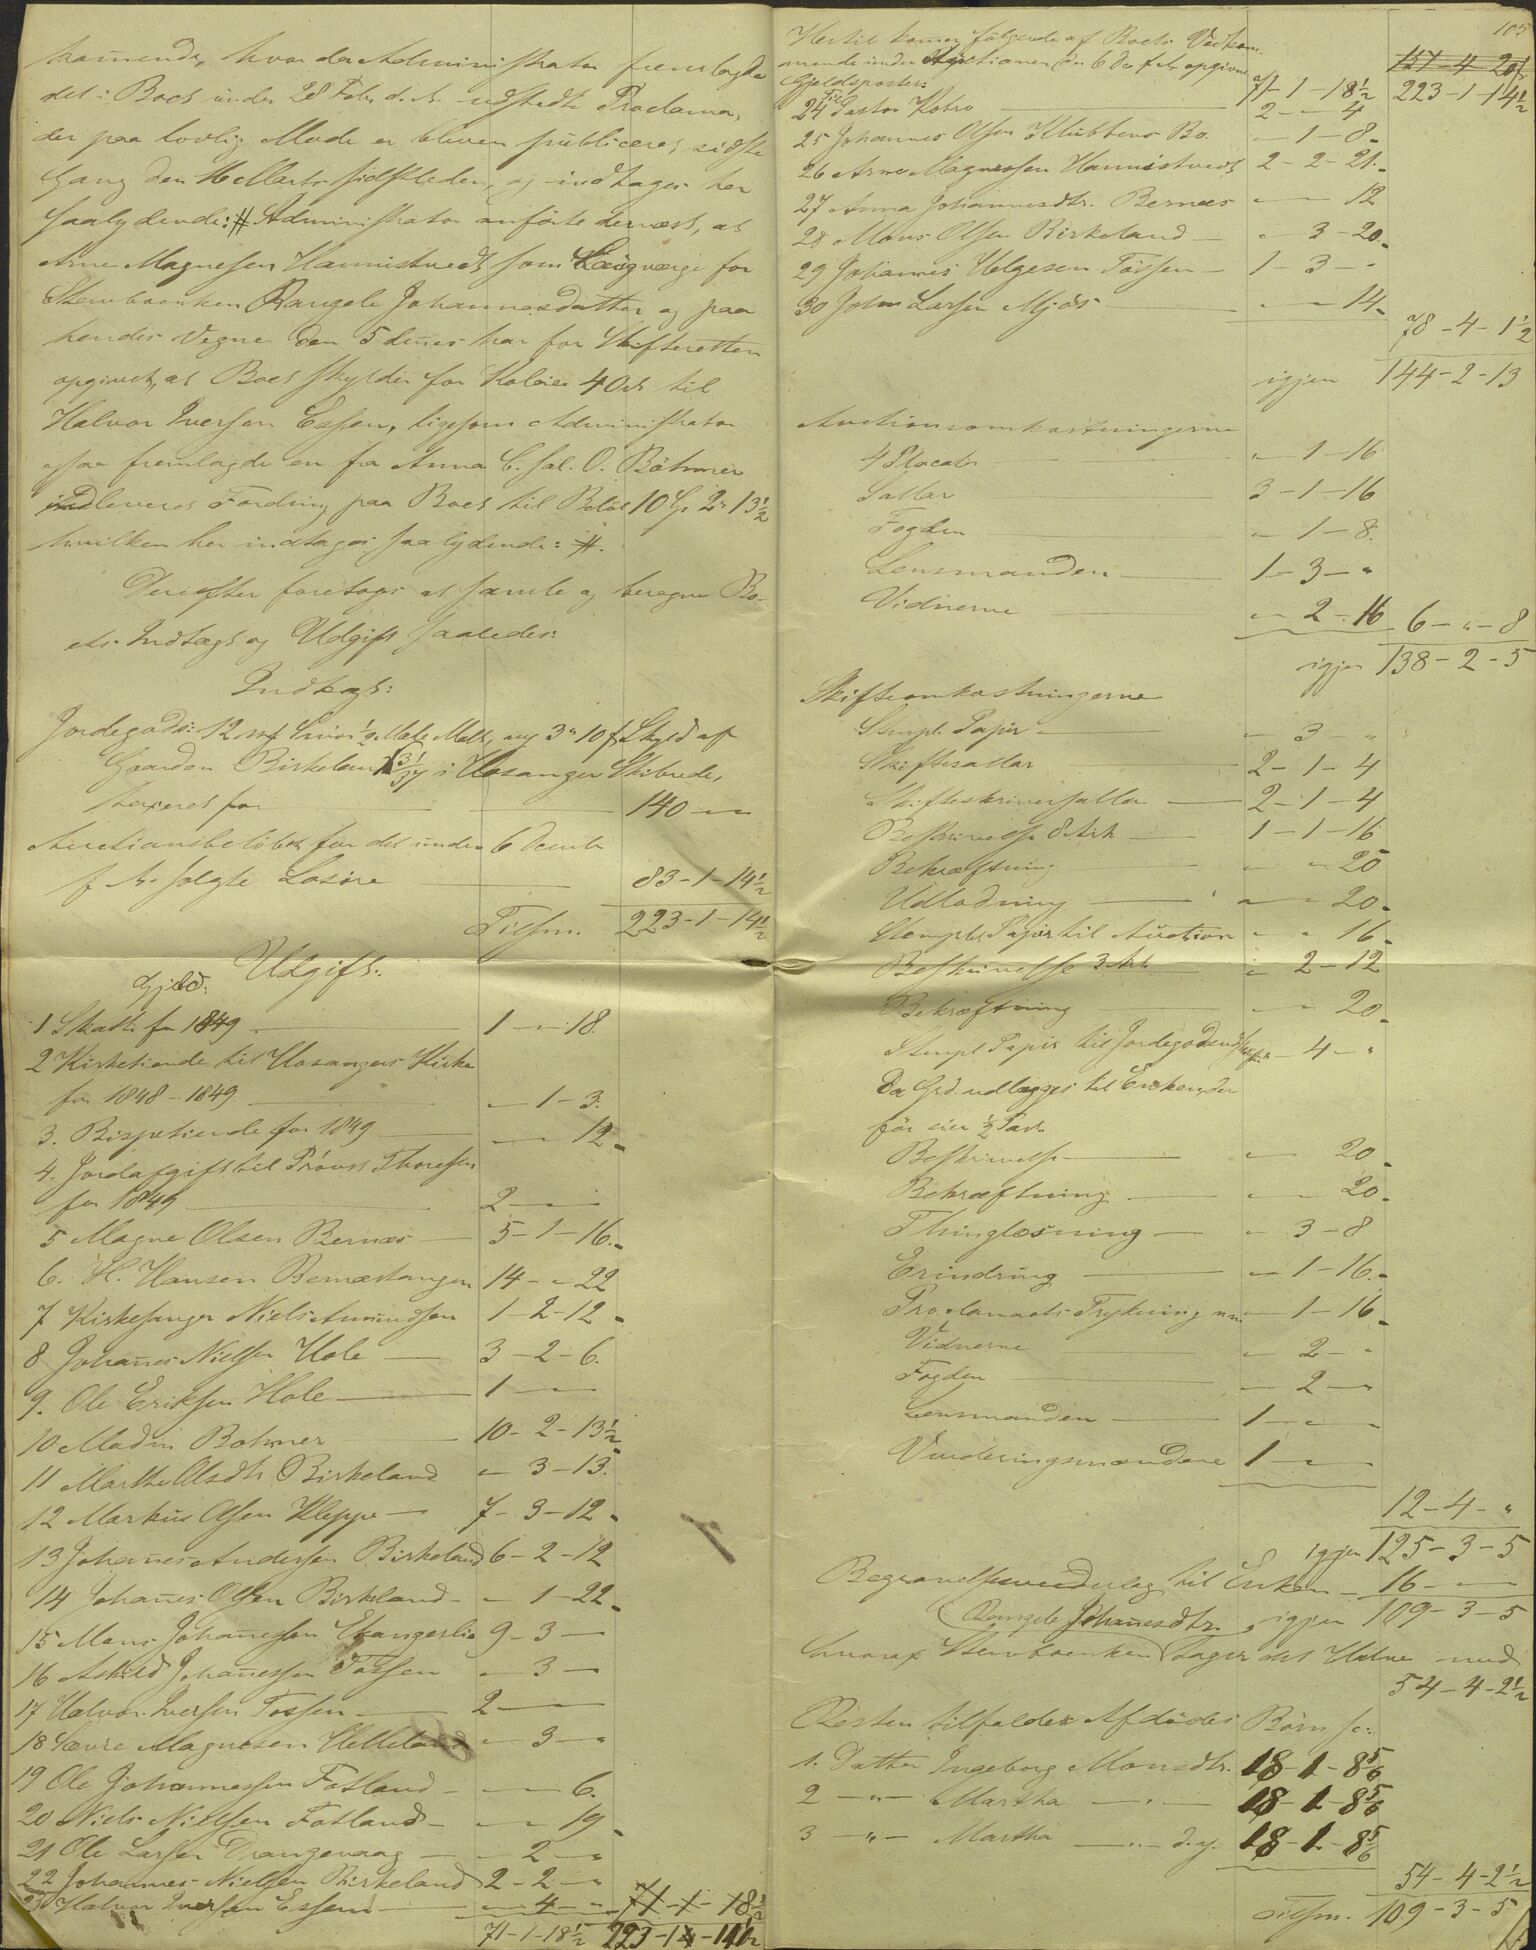 kommende, hvor da Administrator fremlagde
det i Boet under 28 Febr. d. A. udstedte Proclama,
der paa lovlig Maade er bleven publiceret sidste
Gang den Marts sidstleden, og indtages her
saalydende: # Administrator anførte dernæst, at
Arne Magnesen Hannistvedt som Laugværge for
Stervboenken Rangele Johannesdatter og paa
hendes Vegne den 5 dennes har for Skifteretten
opgivet, at Boet skylder for 40 til
Halvor Iversen Essen, ligesom Administrator
fremlagde en fra Anna C. sal. O. Böhmer
indleveret Fordring paa Boet til Beløb 10 2 13½
hvilken her indtages saalydende: #.
Derefter foretoges at samle og beregne Bo-
ets Indtægt og Udgift saaledes:
Indtægt:
Jordegods: 12 Smør ½ Mele Malt, ny 3 10 Skyld af
Gaarden Birkeland i Hosanger Skibrede,
taxeret for — 140 — "
Auctionsbeløbet for det under 6 Decembr
f. A. solgte Løsøre — 83-1-14½
Tilsm. 223-1-14½
Udgift:
Gjeld:
1 Skatter for 1849 — 1 - " - 18.
2 Kirketiende til Hosangers Kirke
for 1848-1849 — " - 1 - 3.
3. Bispetiende for 1849 — " - " - 12
4. Jordafgift til Provst Thoresen
for 1849 — 2 - " - "
5 Magne Olsen Bernæs — 5-1-16.
6. H. Hansen Bernæstangen 14 - " - 22
7 Kirkesanger Niels Amundsen 1-2-12
8 Johannes Nielsen Hole — 3-2-6.
9. Ole Eriksen Hole — 1 - " - "
10 Madm Böhmer — 10-2-13½
11 Marthe Olsdtr Birkeland " - 3-13.
12 Markus Olsen Kleppe — 7-3-12
13 Johannes Andersen Birkeland 6-2-12
14 Johannes Olsen Birkeland — " - 1-22
15 Mons Johannessen 9-3 - "
16 Askild Johannessen Tossen " - 3 - "
17 Halvor Iversen Tossen — 2 - " - "
18 Sævre Magnesen Helleland " - 3 - "
19 Ole Johannessen Fotland — " - " - 6.
20 Niels Nielsen Fotland — " - " - 19
21 Ole Larsen Drangevaag — " - 2 - "
22 Johannes Nielsen Birkeland 2-2 - "
23 Halvor Iversen Essen — " - 4 - " 71-1-18½
71-1-18½ 223-1-14½
105
Hertil kommer følgende af Boets Vedkom-
mende under Auctionen den 6 Dec f. A. opgivne
Gjeldsposter: 71-1-18½ 223-1-14½
24 Til Pastor Kobro — 2 - " - 4
25 Johannes Olsen Bo. " - 1 - 8
26 Arne Magnessen Hannistvedt 2-2-21.
27 Anna Johannesdtr. Bernæs " - " - 12
28 Mons Olsen Birkeland — " - 3-20
29 Johannes Helgesen Tossen — 1-3 - "
30 John Larsen Mjös — " - " - 14
78-4-1½
igjen 144-2-13
Auctionsomkostningerne
4 Placater — " - 1-16
Sallar — 3-1-16
Fogden — " - 1-8.
Lensmanden — 1-3 - "
Vidnerne — " - 2-16 6 - " - 8
igjen 138-2-5
Skifteomkostningerne
Stempl. Papir — " - 3 - "
Skiftesallar — 2-1-4
Skifteskriversallar — 2-1-4
Beskrivelse 8 Ark — 1-1-16
Bekræftning — " - " 20
Udlodning — " - " - 20
Stemplet Papir til Auction " - " 16
Beskrivelse 3 Ark — " 2-12
Bekræftning — " - " 20
Stempl. Papir til Jordegods " - 4 - "
Da Grd. udlægges til Enken, der
før eier ½ Part.
Beskrivelse — " - " 20
Bekræftning — " - " - 20
Thinglæsning — " - 3-8
Erindring — " - 1-16
Proclamaets Trykning m.m. " - 1-16
Vidnerne — " - 2 - "
Fogden — " - 2 - "
Lensmanden — 1 - " - "
Vurderingsmændene 1 - " - "
12-4 - "
igjen 125-3-5
Begravelsesvederlag til Enken — 16 - " - "
igjen 109-3-5
hvoraf Stervboenken (Rangele Johannesdtr.) tager det Halve med
54-4-2½
Resten tilfalder Afdødes Børn so:
1. Datter Ingeborg Monsdtr. 18-1-8⅚
2 — " — Martha — " — 18-1-8⅚
3 — " — Martha — " — d. y. 18-1-8⅚
54-4-2½
Tilsm. 109-3-5